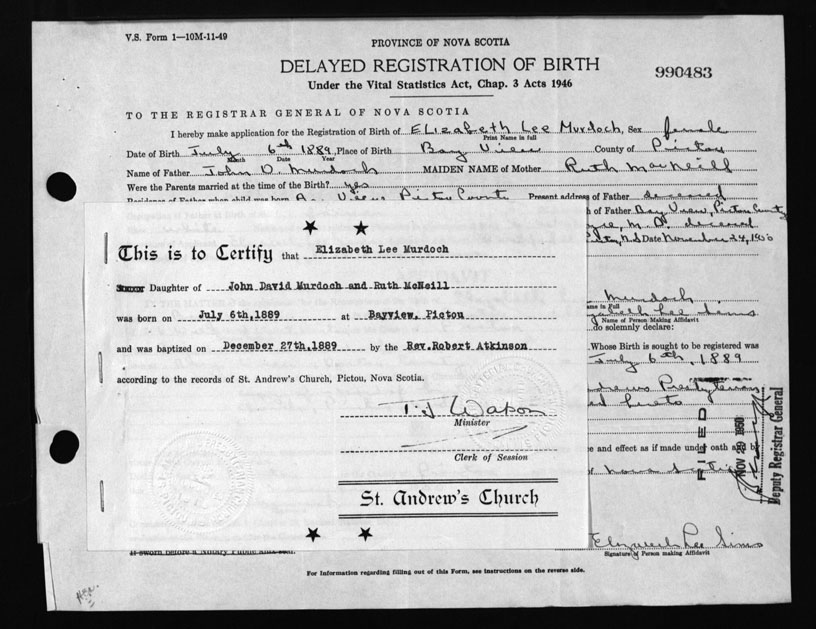 V.S. Form 1—10M-11-49
PROVINCE OF NOVA SCOTIA
DELAYED REGISTRATION OF BIRTH
990483
Under the Vital Statistics Act, Chap. 3 Acts 1946
TO THE REGISTRAR GENERAL OF NOVA SCOTIA
I hereby make application for the Registration of Birth of Elizabeth Lee Murdoch, Sex female
Print Name in full
Date of Birth July 6th 1889, Place of Birth Bay View County of Pictou
Month Date Year
Name of Father John D. Murdoch MAIDEN NAME of Mother Ruth MacNeill
Were the Parents married at the time of the Birth? yes
Residence of Father when child was born Bay View Pictou County Present address of Father deceased
h of Father Bay View, Pictou County
M.D. deceased
N.S. Date November 24, 1950
This is to Certify that Elizabeth Lee Murdoch
Daughter of John David Murdoch and Ruth McNeill
was born on July 6th,1889 at Bayview, Pictou
and was baptized on December 27th,1889 by the Rev.Robert Atkinson
according to the records of St. Andrew's Church, Pictou, Nova Scotia.
Minister
Clerk of Session
St. Andrew's Church
Murdoch
ame in Full
zabeth Lee Sims
Name of Person Making Affidavit
do solemnly declare:
Whose Birth is sought to be registered was
July 6th, 1889
ndrews Presbyterian
ed hereto
e and effect as if made under oath and by
FILED
NOV 29 1950
Deputy Registrar General
Elizabeth Lee Sims
Signature of Person making Affidavit
If sworn before a Notary Public affix seal.
For Information regarding filling out of this Form, see instructions on the reverse side.